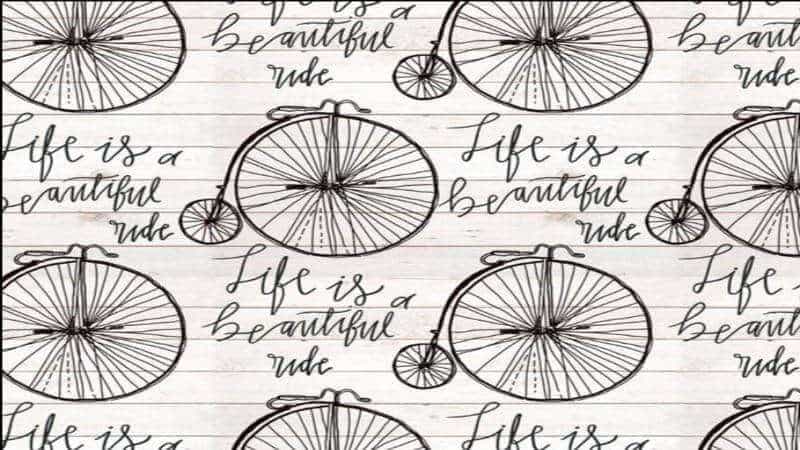 Life is a
beautiful
ride
beautiful
ride
Life is a
beautiful
ride
Life is a
beautiful
ride
Life is a
beautiful
ride
Life is
beautiful
ride
Life is a
Life is a